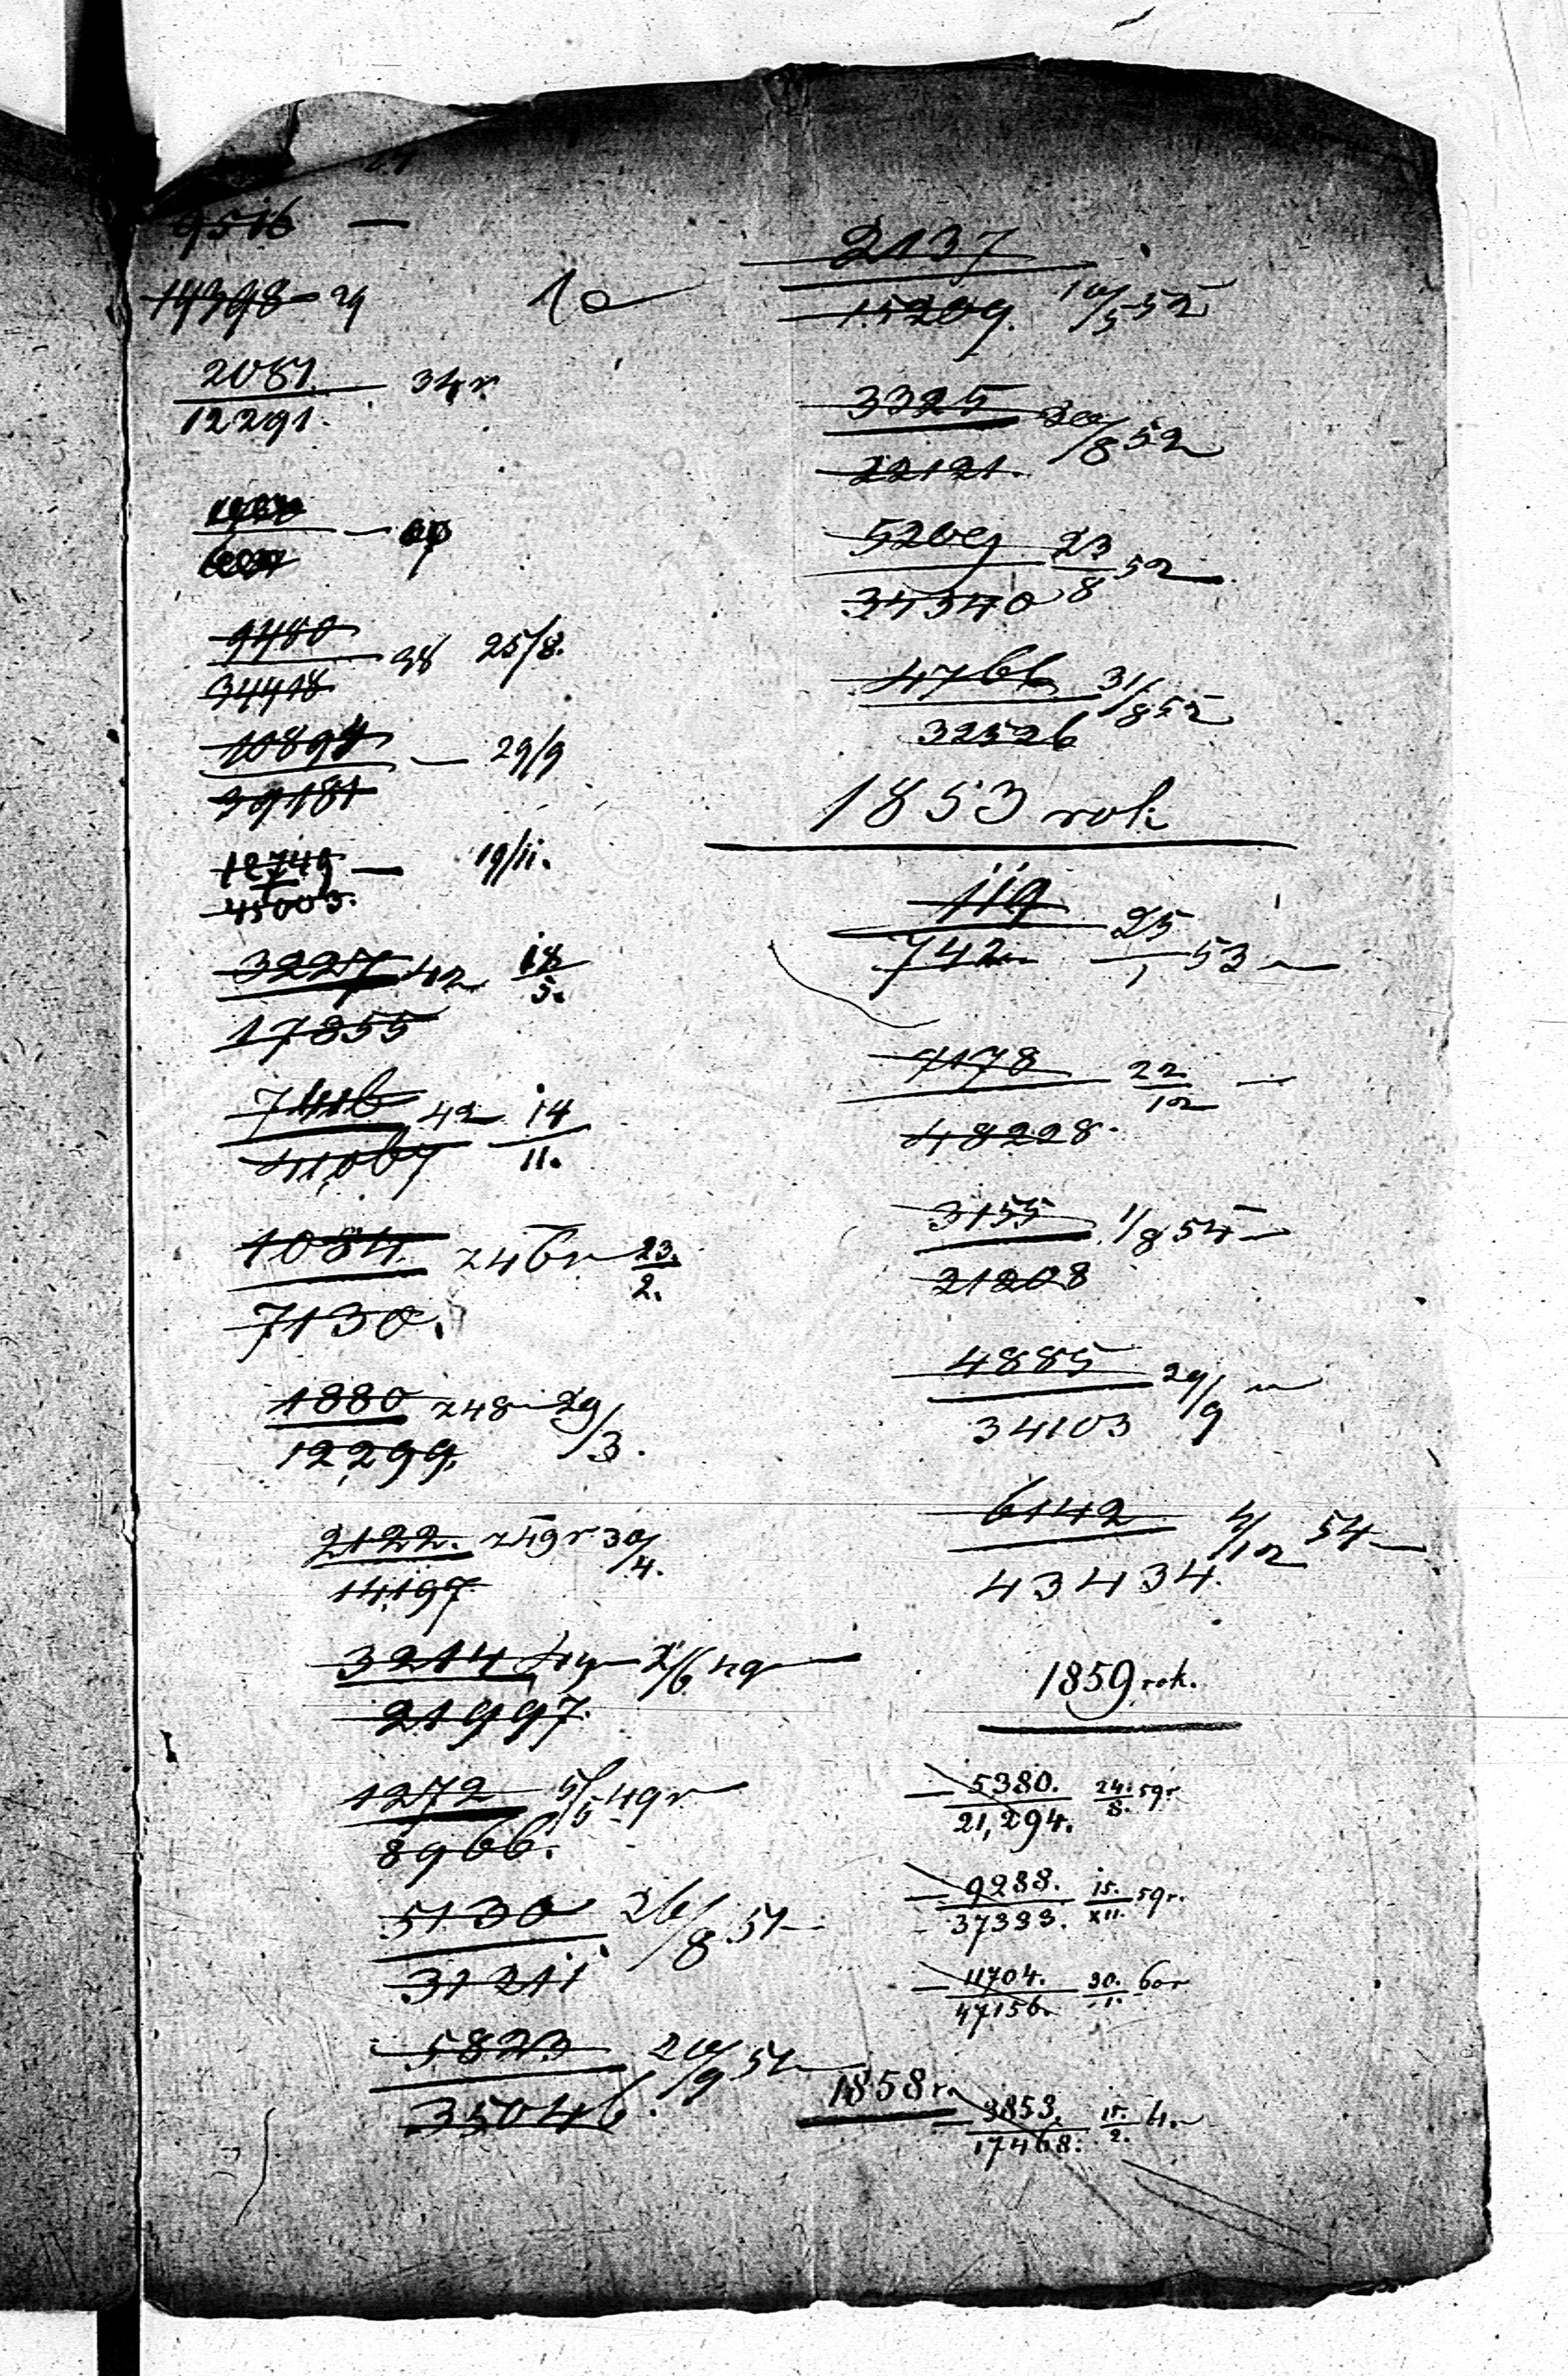 9516 —
14398 - 29
10
2081. 34 r.
12291.
9480
34418 38 25/8.
10894
39181 — 29/9
12749 — 19/11.
45003.
3227 42 18/5.
17855
7416 42 14/11.
41067
1084. z 46 r 23./2.
7130.
1880 z 48 29/3.
12299.
2122. z 49 r 30/4.
14197
3214 2/6 49
21997.
1272 5/5 49 r
8966.
5130 26/8 51
31211
5823 20/9 51
35046.
2137
15209. 10/5 52
3325 30/8 52
22121.
5209 23/8 52
34340
4766 31/8 52
32526
1853 rok
119 25/1 53
742
7178 22/12 —
48228.
3155 1/8 54
21208
4885 29/9
34103
6142 4/12 54
43434.
1859 rok.
5380. 24./8. 59 r.
21,294.
9288. 15./XII. 59 r.
37333.
11704. 30./1. 60 r
47156.
1858 r.
3853. 15./2.
17468.